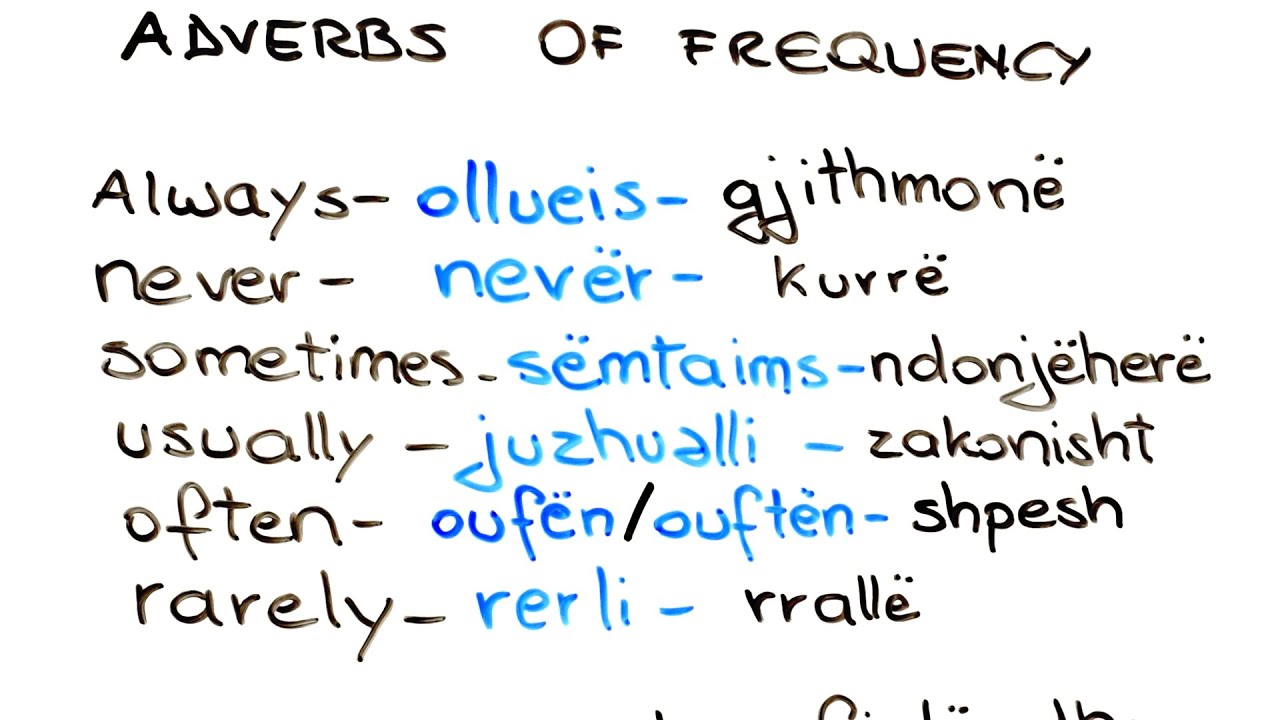 ADVERBS OF FREQUENCY
Always- ollueis- gjithmonë
never- nevër- kurrë
sometimes-sëmtaims-ndonjëherë
usually - juzhualli - zakonisht
often- oufën/ouftën- shpesh
rarely- rerli - rrallë